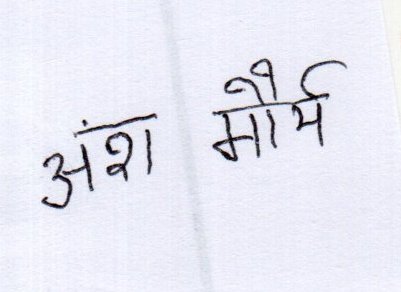 अंश मौर्य